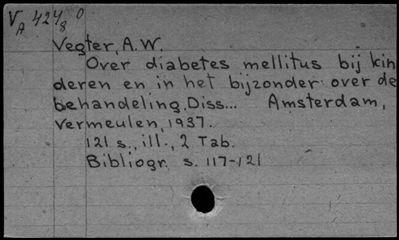 VA 424/8 0
Vegter, A.W.
Over diabetes mellitus bij kin
deren en in het bijzonder over de
behandeling. Diss... Amsterdam,
Vermeulen, 1937.
121 s., ill., 2 Tab.
Bibliogr. s. 117-121